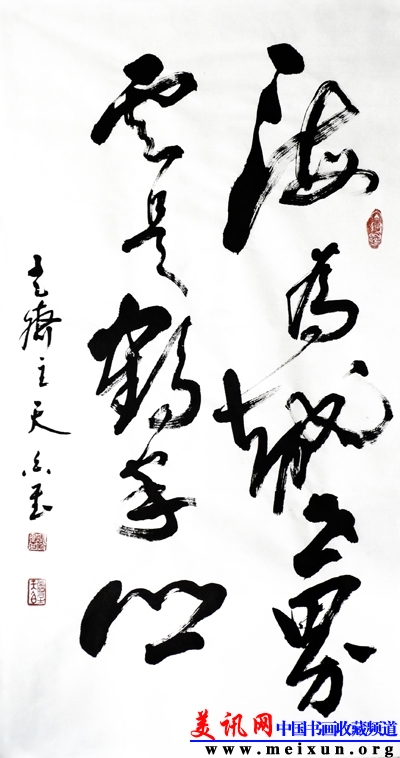 海為龍世界
雲是鶴家鄉
齋主天
美讯网 中国书画收藏频道
www.meixun.org